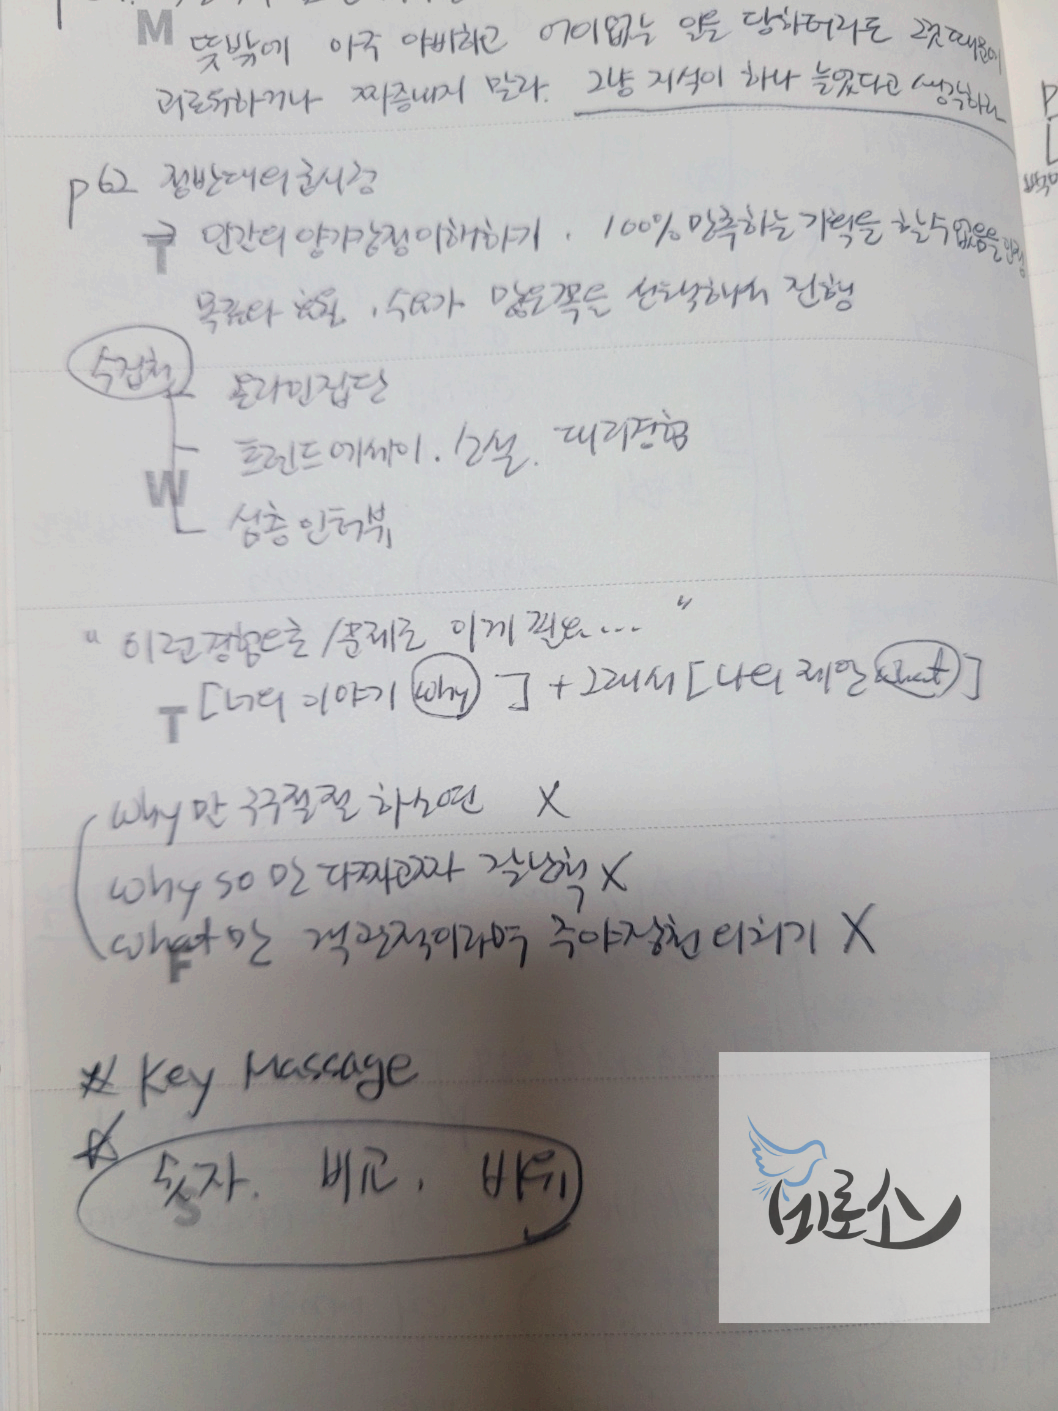 뜻밖에 아주 야비하고 어이없는 일을 당하더라도 그것 때문에
괴로워하거나 짜증내지 말라. 그냥 지식이 하나 늘었다고 생각하라
p62 정반대의 효시경
M
→ 인간의 양가감정 이해하기. 100% 만족하는 기획을 할 수 없음을 인정
T
목표와 필요, 수요가 많은 쪽을 선택해서 진행
수집처
온라인집단
트렌드 에세이. 소설. 대리경험
W
심층인터뷰
" 이런경험으로/문제로 이게 필요... "
[너의 이야기 why ] + 그래서 [나의 제안 what]
T
why만 구구절절 하소연 X
why so 만 다짜고짜 X
what만 객관적이라며 주야장천 외치기 X
F
# Key Massage
☆
숫자. 비교. 바위
S
비로소